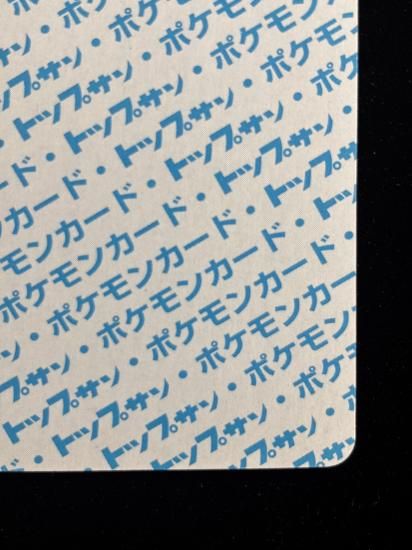 ポケ
ン・ポケモ
ップサン・ポケモン
・トップサン・ポケモン
ード・トップサン・ポケモン
ンカード・トップサン・ポケ
モンカード・トップサン・
ポケモンカード・トップサン
・ポケモンカード・トッ
ン・ポケモンカード・
プサン・ポケモンカー
トップサン・ポケモン
・トップサン・ポケ
ド・トップサン・
トップ